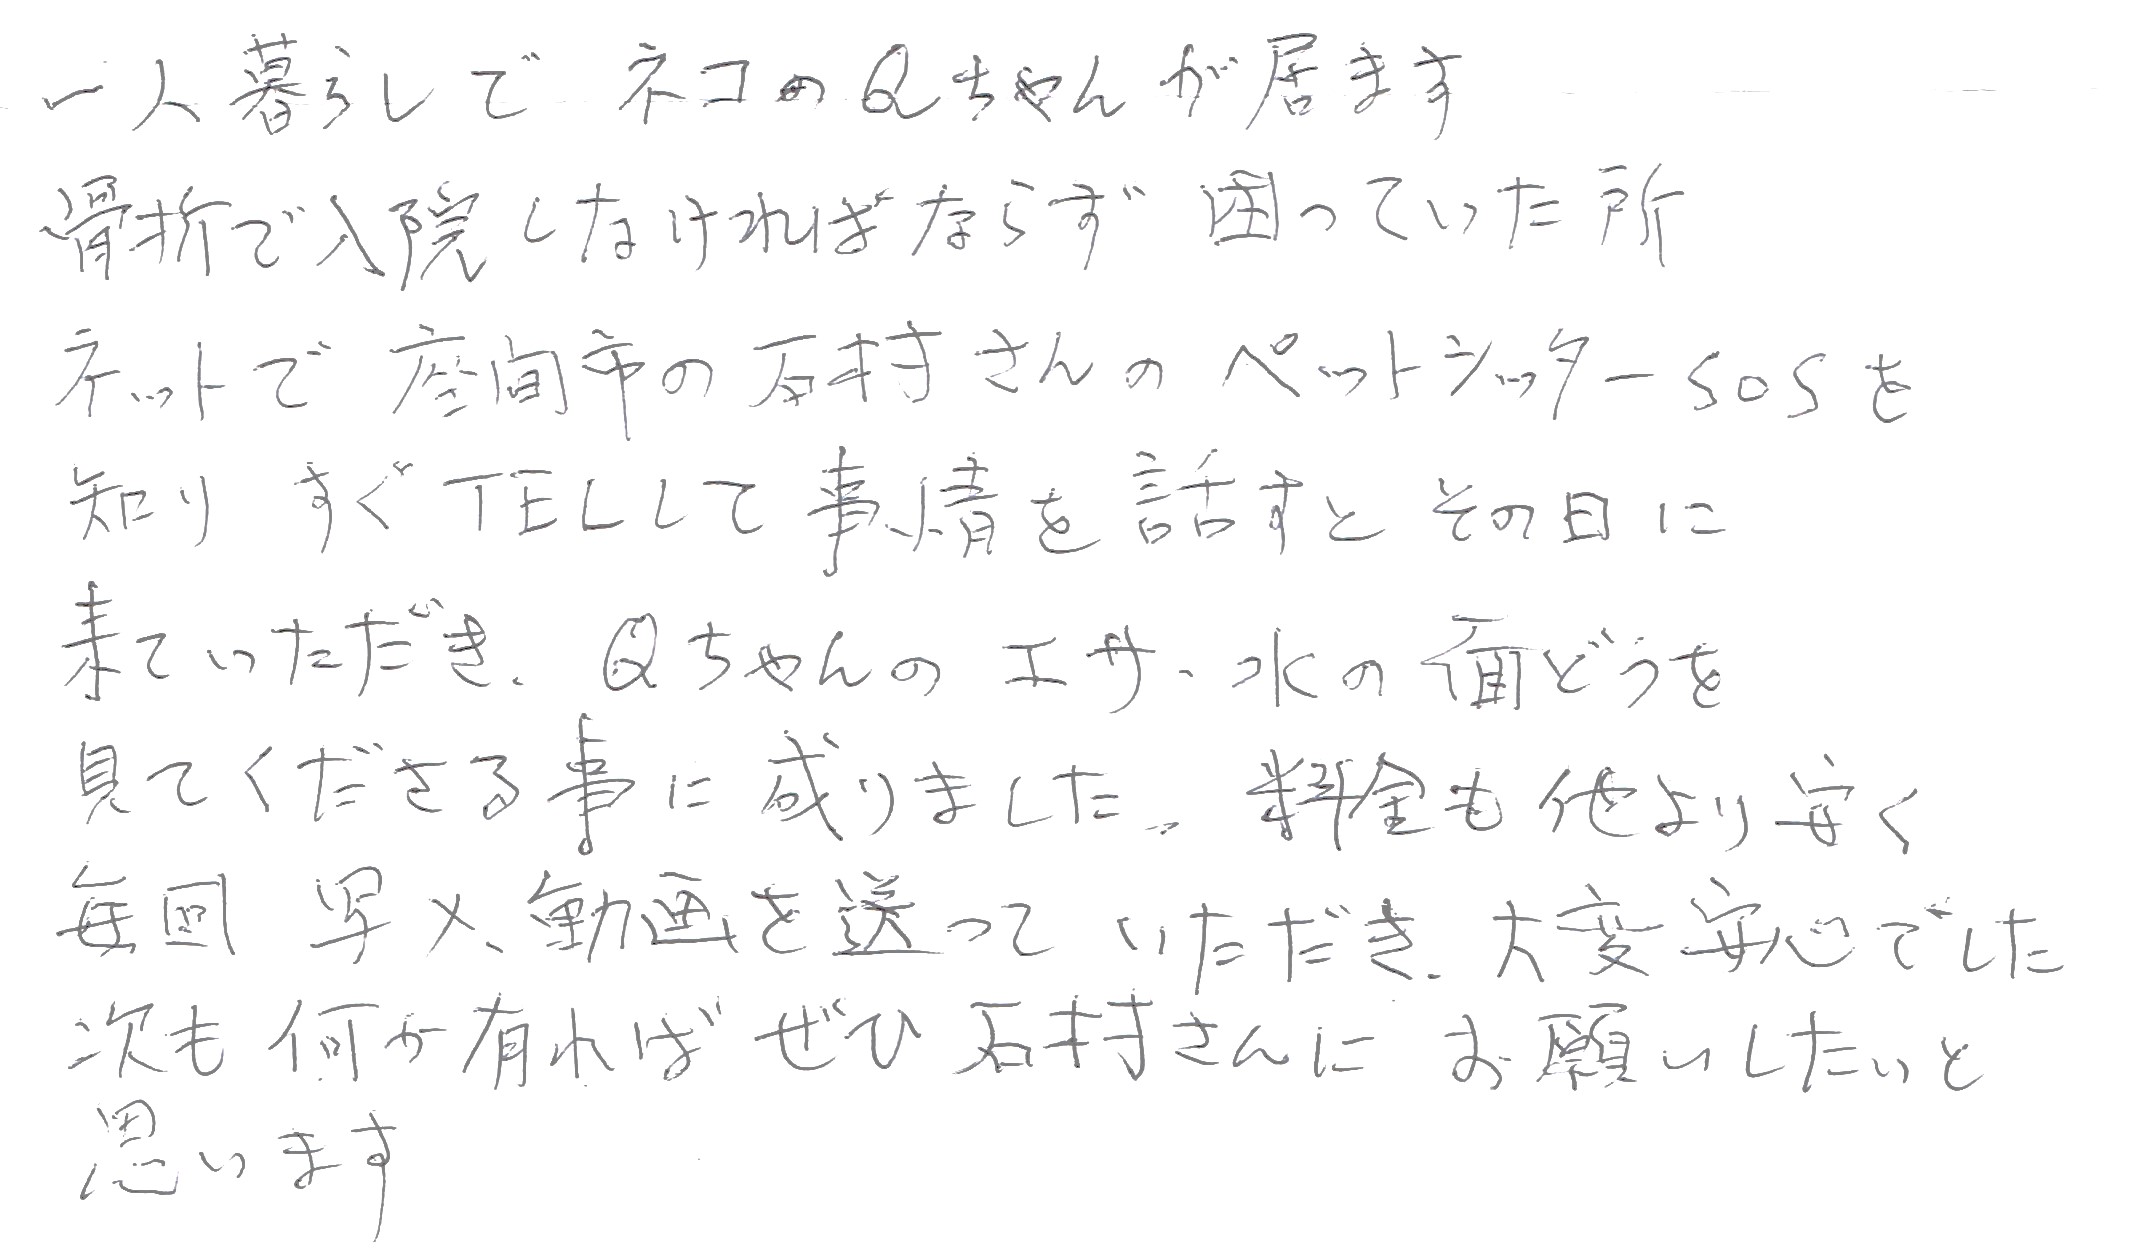 一人暮らしで ネコのQちゃんが居ます
骨折で入院しなければならず 困っていた所
ネットで 座間市の石村さんのペットシッターSOSを
知り すぐTELして事情を話すと その日に
来ていただき、Qちゃんの エサ・水の面どうを
見てくださる事に成りました。料金も他より安く
毎回 写メ、動画を送って いただき、大変安心でした
次も何か有ればぜひ石村さんにお願いしたいと
思います